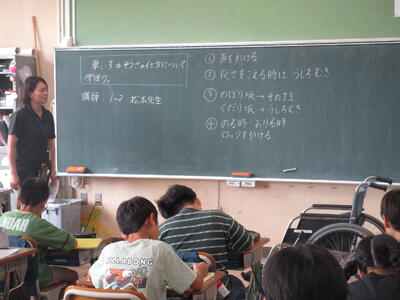 車いすのそうさの仕方について
学ぼう。
講師:1-2 松本先生
① 声をかける
② 段さをこえる時は、うしろむき
③ のぼり坂→そのまま
くだり坂→うしろむき
④ のる時・おりる時
ロックをかける
BILLABONG